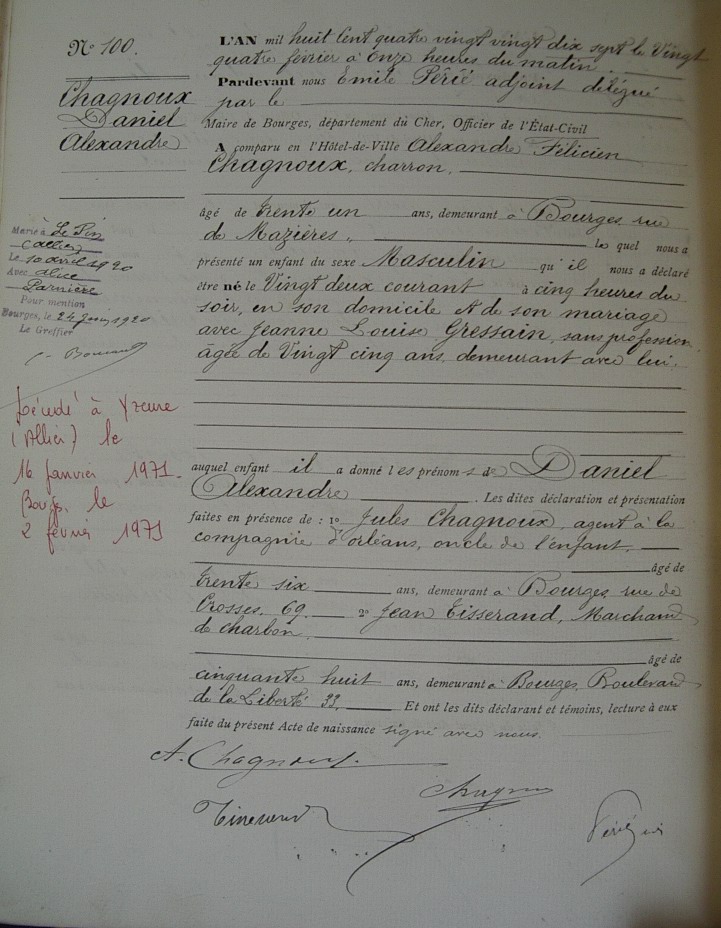 N° 100.
Chagnoux
Daniel
Alexandre
Marié à Le Pin
(Allier)
Le 10 avril 1920
Avec Alice
Parnière
Pour mention
Bourges, le 24 juin 1920
Le Greffier
Décédé à Yzeure
(Allier) le
16 janvier 1971.
Bourges, le
2 février 1971
L'AN mil huit Cent quatre vingt vingt dix sept le Vingt
quatre février à Onze heures du matin
Pardevant nous Emile Périé adjoint délégué
par le
Maire de Bourges, département du Cher, Officier de l'État-Civil
A comparu en l'Hôtel-de-Ville Alexandre Félicien
Chagnoux, charron,
âgé de trente un ans, demeurant à Bourges rue
de Mazières, le quel nous a
présenté un enfant du sexe Masculin qu'il nous a déclaré
être né le Vingt deux courant à cinq heures du
soir, en son domicile et de son mariage
avec Jeanne Louise Gressain, sans profession
âgée de Vingt cinq ans, demeurant avec lui.
auquel enfant il a donné les prénoms de Daniel
Alexandre. Les dites déclaration et présentation
faites en présence de : 1° Jules Chagnoux, agent à la
compagnie d'orléans, oncle de l'enfant,
âgé de
trente six ans, demeurant à Bourges, rue de
Crosses 69. 2° Jean Tisserand, Marchand
de charbon,
âgé de
cinquante huit ans, demeurant à Bourges, Boulevard
de la Liberté 33, Et ont les dits déclarant et témoins, lecture à eux
faite du présent Acte de naissance signé avec nous.
A. Chagnoux.